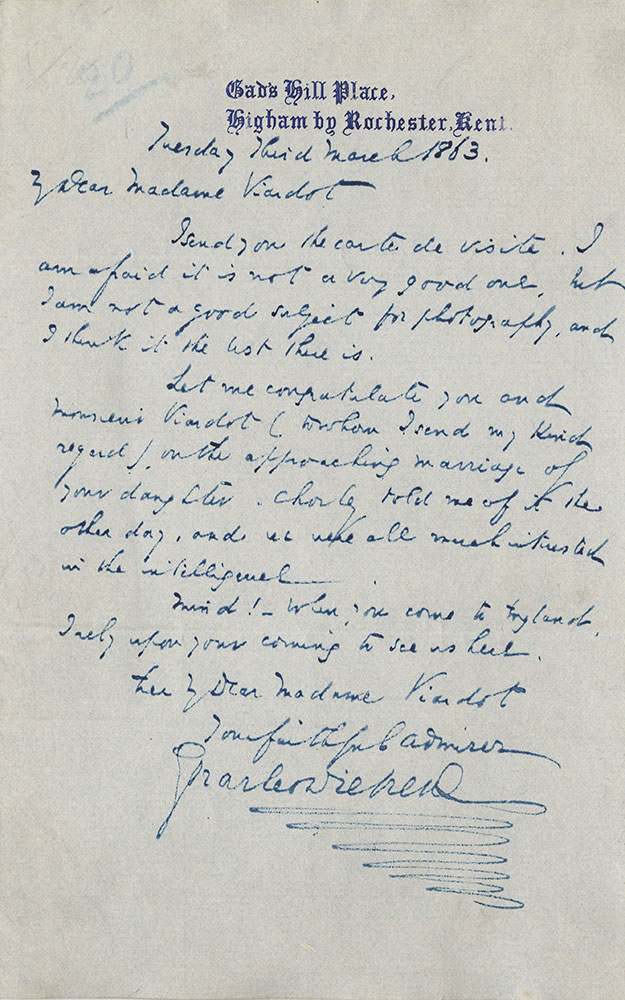 Gad's Hill Place,
Higham by Rochester, Kent.
Tuesday Third March 1863.
My Dear Madame Viardot
I send you the carte de visite. I
am afraid it is not a very good one, but
I am not a good subject for photography, and
I think it the best there is.
Let me congratulate you and
Monsieur Viardot (to whom I send my kind
regard), on the approaching marriage of
your daughter. Chorley told me of it the
other day, and we were all much interested
in the intelligence.
Mind! – When you come to England,
I rely upon your coming to see us here.
Ever My Dear Madame Viardot
Your faithful admirer
Charles Dickens